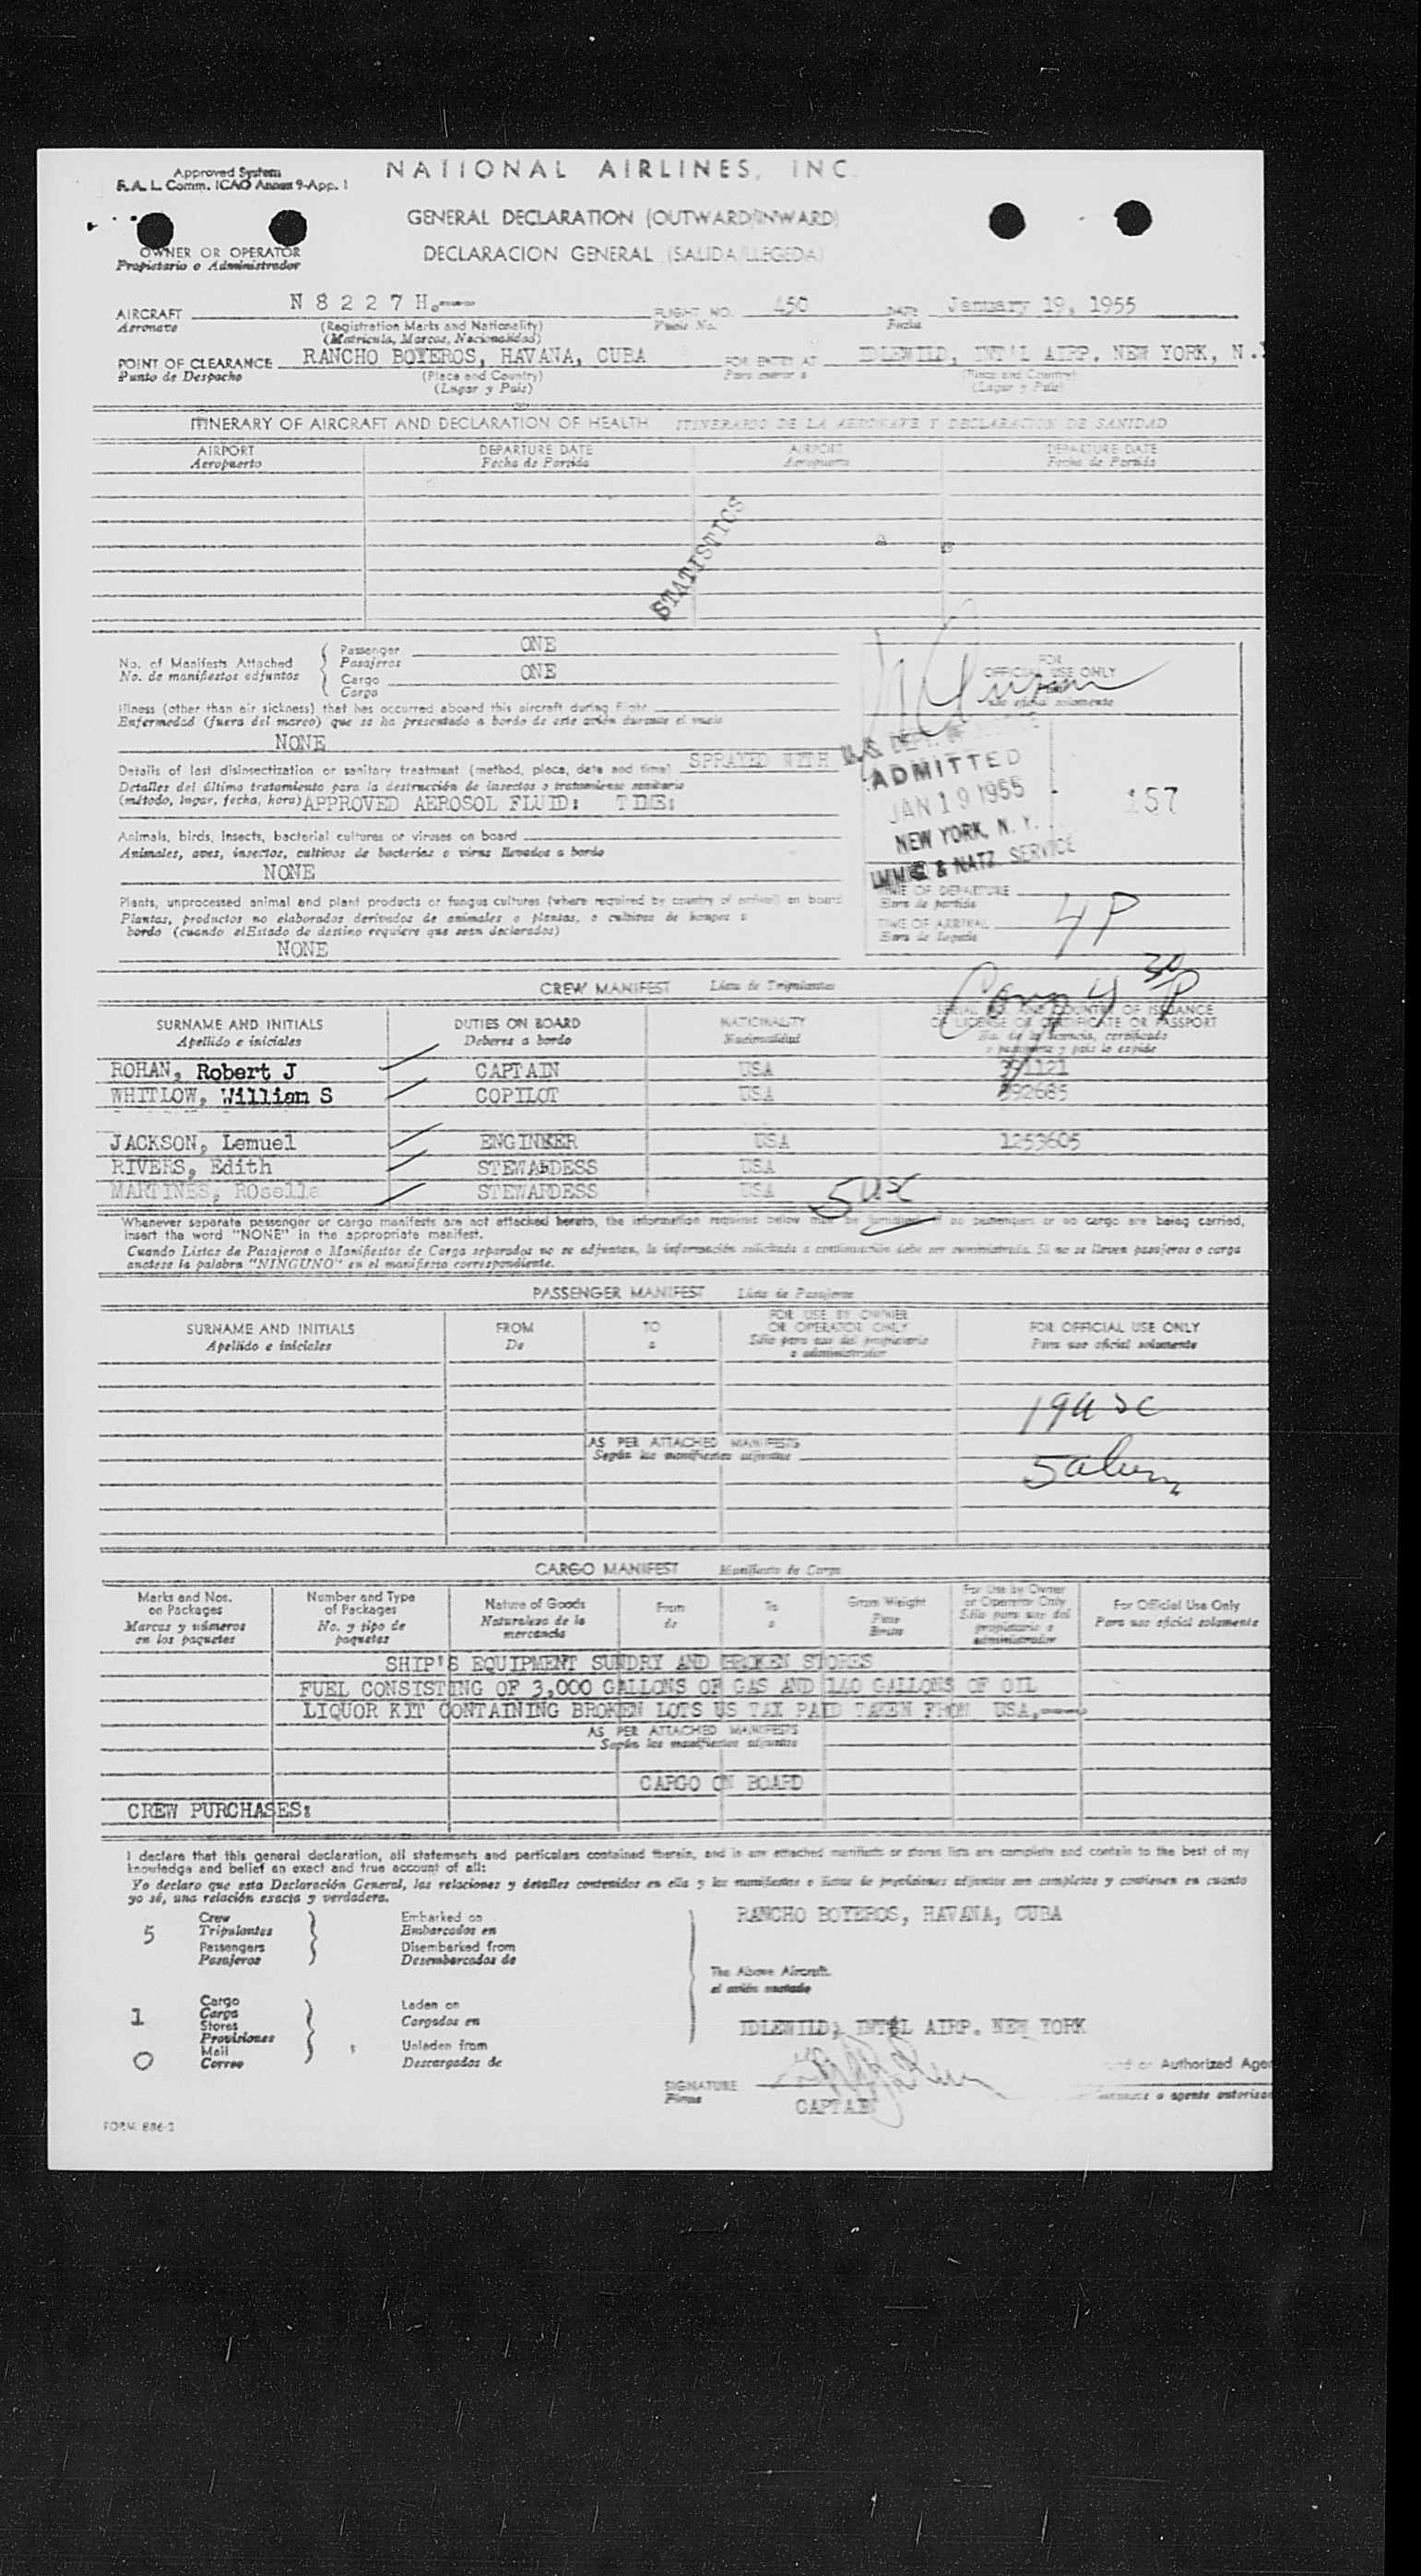 Approved System
F.A.L. Comm. ICAO Annex 9-App. 1
NATIONAL AIRLINES, INC.
GENERAL DECLARATION (OUTWARD/INWARD)
DECLARACION GENERAL (SALIDA/LLEGEDA)
OWNER OR OPERATOR
Propietario o Administrador
AIRCRAFT N 8 2 2 7 H. FLIGHT NO. 450 DATE January 19, 1955
Aeronave (Registration Marks and Nationality) Vuelo No. Fecha
(Matricula, Marcas, Nacionalidad)
POINT OF CLEARANCE RANCHO BOYEROS, HAVANA, CUBA FOR ENTRY AT IDLEWILD, INT'L AIRP. NEW YORK, N.
Punto de Despacho (Place and Country) Para entrar a (Place and Country)
(Lugar y Pais) (Lugar y Pais)
ITINERARY OF AIRCRAFT AND DECLARATION OF HEALTH ITINERARIO DE LA AERONAVE Y DECLARACION DE SANIDAD
AIRPORT DEPARTURE DATE AIRPORT DEPARTURE DATE
Aeropuerto Fecha de Partida Aeropuerto Fecha de Partida
STATISTICS
No. of Manifests Attached Passenger ONE
No. de manifiestos adjuntos Pasajeros
Cargo ONE
Cargo
FOR
OFFICIAL USE ONLY
uso oficial solamente
Illness (other than air sickness) that has occurred aboard this aircraft during flight
Enfermedad (fuera del mareo) que se ha presentado a bordo de este avión durante el vuelo
NONE
Details of last disinsectization or sanitary treatment (method, place, date and time) SPRAYED WITH
Detalles del último tratamiento para la destrucción de insectos o tratamiento sanitario
(método, lugar, fecha, hora) APPROVED AEROSOL FLUID: TIME:
U.S. DEPT. OF
ADMITTED
JAN 19 1955
NEW YORK, N. Y.
IMMIG & NATZ SERVICE
157
Animals, birds, insects, bacterial cultures or viruses on board
Animales, aves, insectos, cultivos de bacterias o virus llevados a bordo
NONE
Plants, unprocessed animal and plant products or fungus cultures (where required by country of arrival) on board
Plantas, productos no elaborados derivados de animales o plantas, o cultivos de hongos a
bordo (cuando el Estado de destino requiere que sean declarados)
NONE
TIME OF DEPARTURE
Hora de partida
TIME OF ARRIVAL 4P
Hora de Llegada
CREW MANIFEST Lista de Tripulantes
30
SURNAME AND INITIALS DUTIES ON BOARD NATIONALITY SERIAL NO. AND COUNTRY OF ISSUANCE
Apellido e iniciales Deberes a bordo Nacionalidad OF LICENSE OR CERTIFICATE OR PASSPORT
No. de la licencia, certificado
o pasaporte y pais lo expide
ROHAN, Robert J CAPTAIN USA 391121
WHITLOW, William S COPILOT USA 392685
JACKSON, Lemuel ENGINEER USA 1253605
RIVERS, Edith STEWARDESS USA
MARTINES, ROselle STEWARDESS USA
5 usc
Whenever separate passenger or cargo manifests are not attached hereto, the information required below must be furnished. If no passengers or no cargo are being carried,
insert the word "NONE" in the appropriate manifest.
Cuando Listas de Pasajeros o Manifiestos de Carga separados no se adjuntan, la información solicitada a continuación debe ser suministrada. Si no se llevan pasajeros o carga
anotese la palabra "NINGUNO" en el manifiesto correspondiente.
PASSENGER MANIFEST Lista de Pasajeros
SURNAME AND INITIALS FROM TO FOR USE BY OWNER OR OPERATOR ONLY FOR OFFICIAL USE ONLY
Apellido e iniciales De a Sólo para uso del propietario o administrador Para uso oficial solamente
19 usc
AS PER ATTACHED MANIFESTS
Según los manifiestos adjuntos
5 alien
CARGO MANIFEST Manifiesto de Carga
Marks and Nos. on Packages Number and Type of Packages Nature of Goods From To Gross Weight For Use by Owner or Operator Only For Official Use Only
Marcas y números en los paquetes No. y tipo de paquetes Naturaleza de la mercancía de a Peso Bruto Sólo para uso del propietario o administrador Para uso oficial solamente
SHIP'S EQUIPMENT SUNDRY AND BROKEN STORES
FUEL CONSISTING OF 3,000 GALLONS OF GAS AND 140 GALLONS OF OIL
LIQUOR KIT CONTAINING BROKEN LOTS US TAX PAID TAKEN FROM USA.
AS PER ATTACHED MANIFESTS
Según los manifiestos adjuntos
CARGO ON BOARD
CREW PURCHASES:
I declare that this general declaration, all statements and particulars contained therein, and in any attached manifests or stores lists are complete and contain to the best of my
knowledge and belief an exact and true account of all:
Yo declaro que esta Declaración General, las relaciones y detalles contenidos en ella y los manifiestos o listas de provisiones adjuntos son completos y contienen en cuanto
yo sé, una relación exacta y verdadera.
5 Crew Embarked on RANCHO BOYEROS, HAVANA, CUBA
Tripulantes Embarcados en
Passengers Disembarked from
Pasajeros Desembarcados de
The Above Aircraft.
el avión anotado
Cargo Laden on
1 Carga Cargados en
Stores IDLEWILD, INT'L AIRP. NEW YORK
Provisiones
Mail Unladen from
0 Correo Descargados de
or Authorized Agen
SIGNATURE
Firma o agente autorizad
CAPTAIN
FORM 886-2